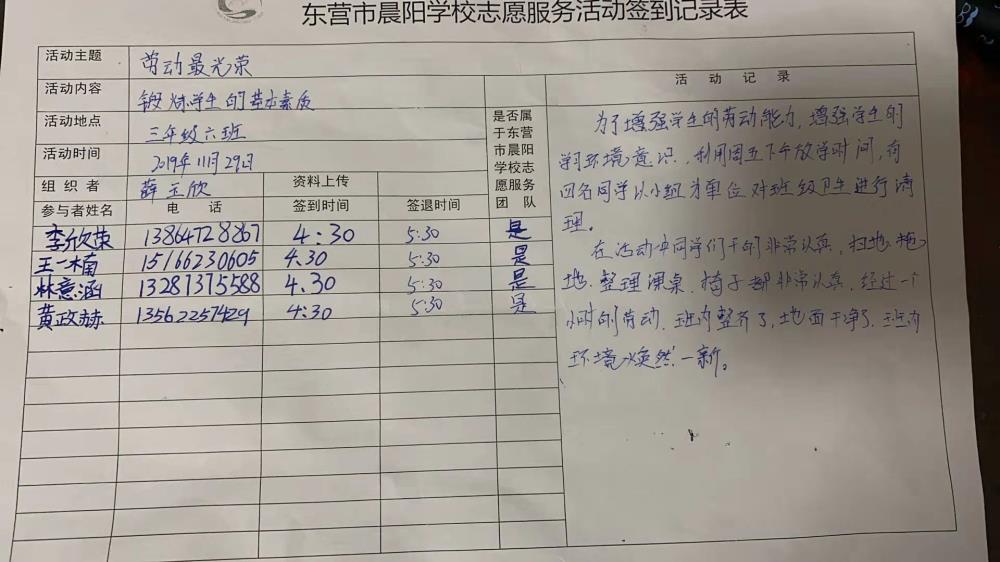 东营市晨阳学校志愿服务活动签到记录表
活动主题 劳动最光荣
活动内容 锻炼学生的基本素质
活动地点 三年级六班
活动时间 2019年11月29日
组织者 薛玉欣 资料上传
参与者姓名 电话 签到时间 签退时间 是否属于东营市晨阳学校志愿服务团队
李欣荣 13864728867 4:30 5:30 是
王一楠 15166230605 4.30 5:30 是
林意涵 13281375588 4.30 5:30 是
黄政赫 13562257429 4:30 5:30 是
活动记录
为了增强学生的劳动能力,增强学生的
学习环境意识,利用周五下午放学时间,有
四名同学以小组为单位对班级卫生进行清
理。
在活动中同学们干的非常认真,扫地、拖
地、整理课桌、椅子都非常认真,经过一个
小时的劳动,班内整齐了,地面干净了,班内
环境焕然一新。